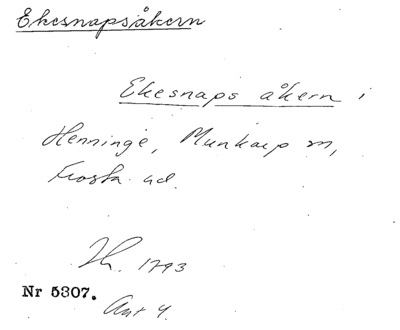 Ekesnapsåkern
Ekesnaps åkern i
Henninge, Munkarp sn,
Frosta hd.
Th. 1793
Nr 5307.
Ant 4.